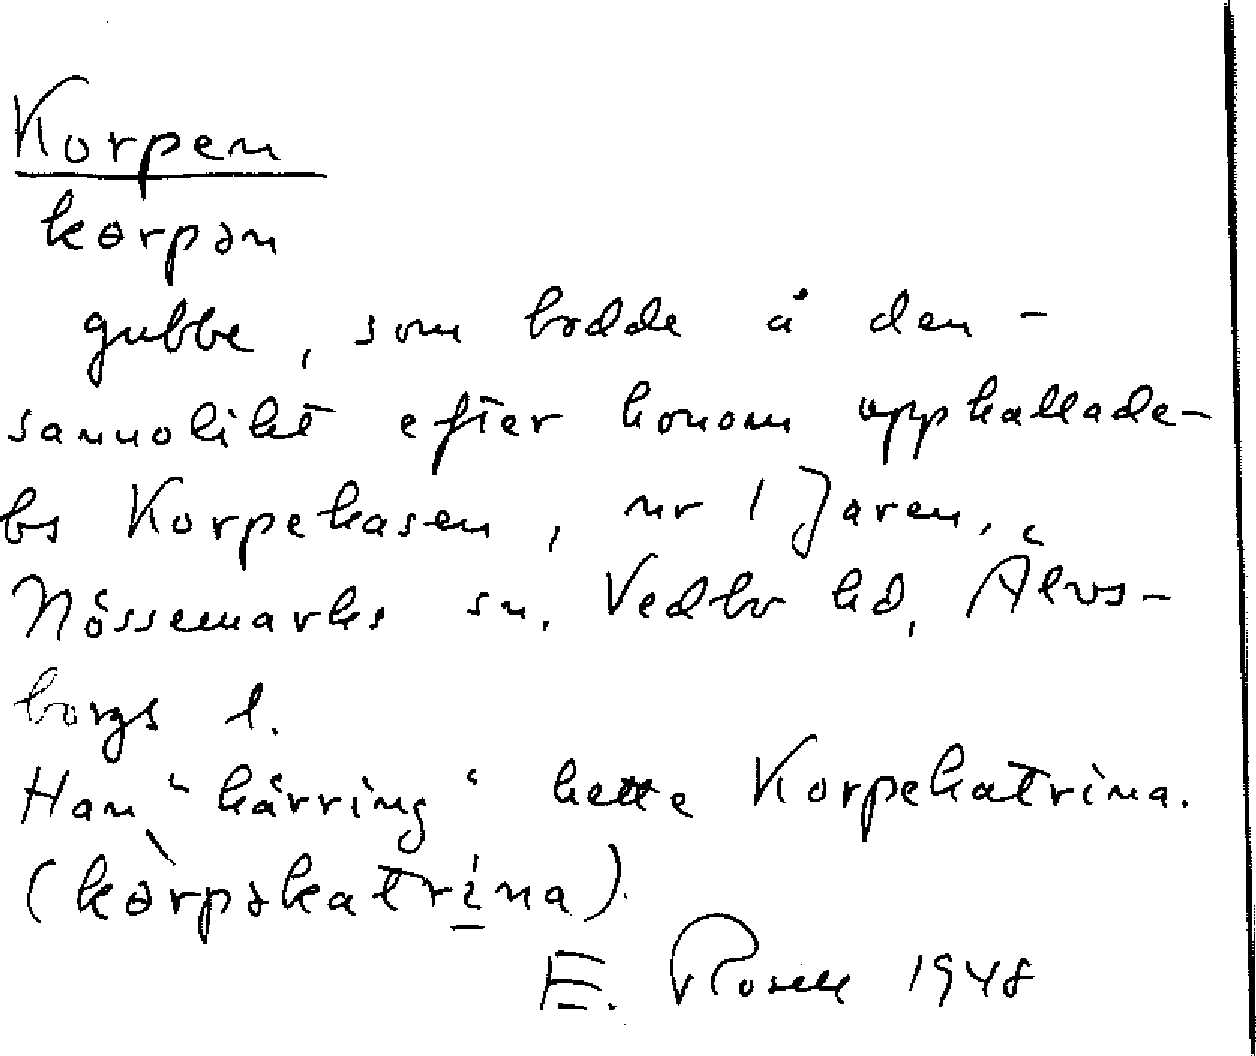 Korpen
kɵrpən
gubbe, som bodde å den -
sannolikt efter honom uppkallade -
bs Korpekasen, nr 1 Jaren,
Nössemarks sn, Vedbo hd, Älvs-
borgs l.
Han "kärring" hette Korpekatrina.
(kɵ̀rpəkatrína).
E. Rosell 1948